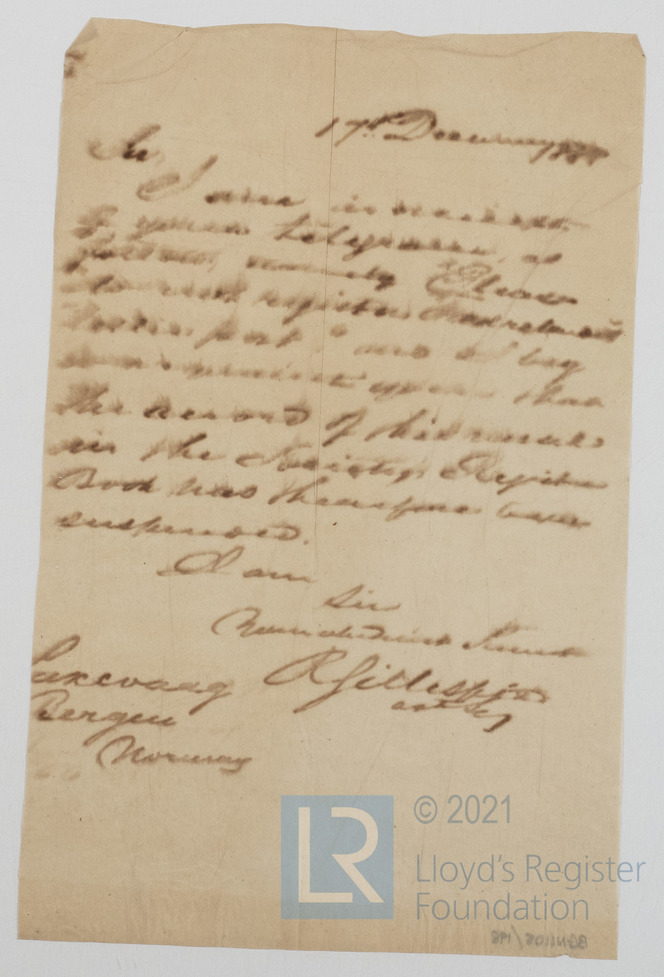 17th December 188
Sir,
I am in receipt
of your telegram, as
follows, namely "Please
register
port" and I beg
you that
the record of this vessel
in the Society's Register
Book has therefore been
suspended.
I am
Sir
Your obedient Servant
Laxevaag R Gillespie
Bergen
Norway
LR
© 2021
Lloyd's Register
Foundation